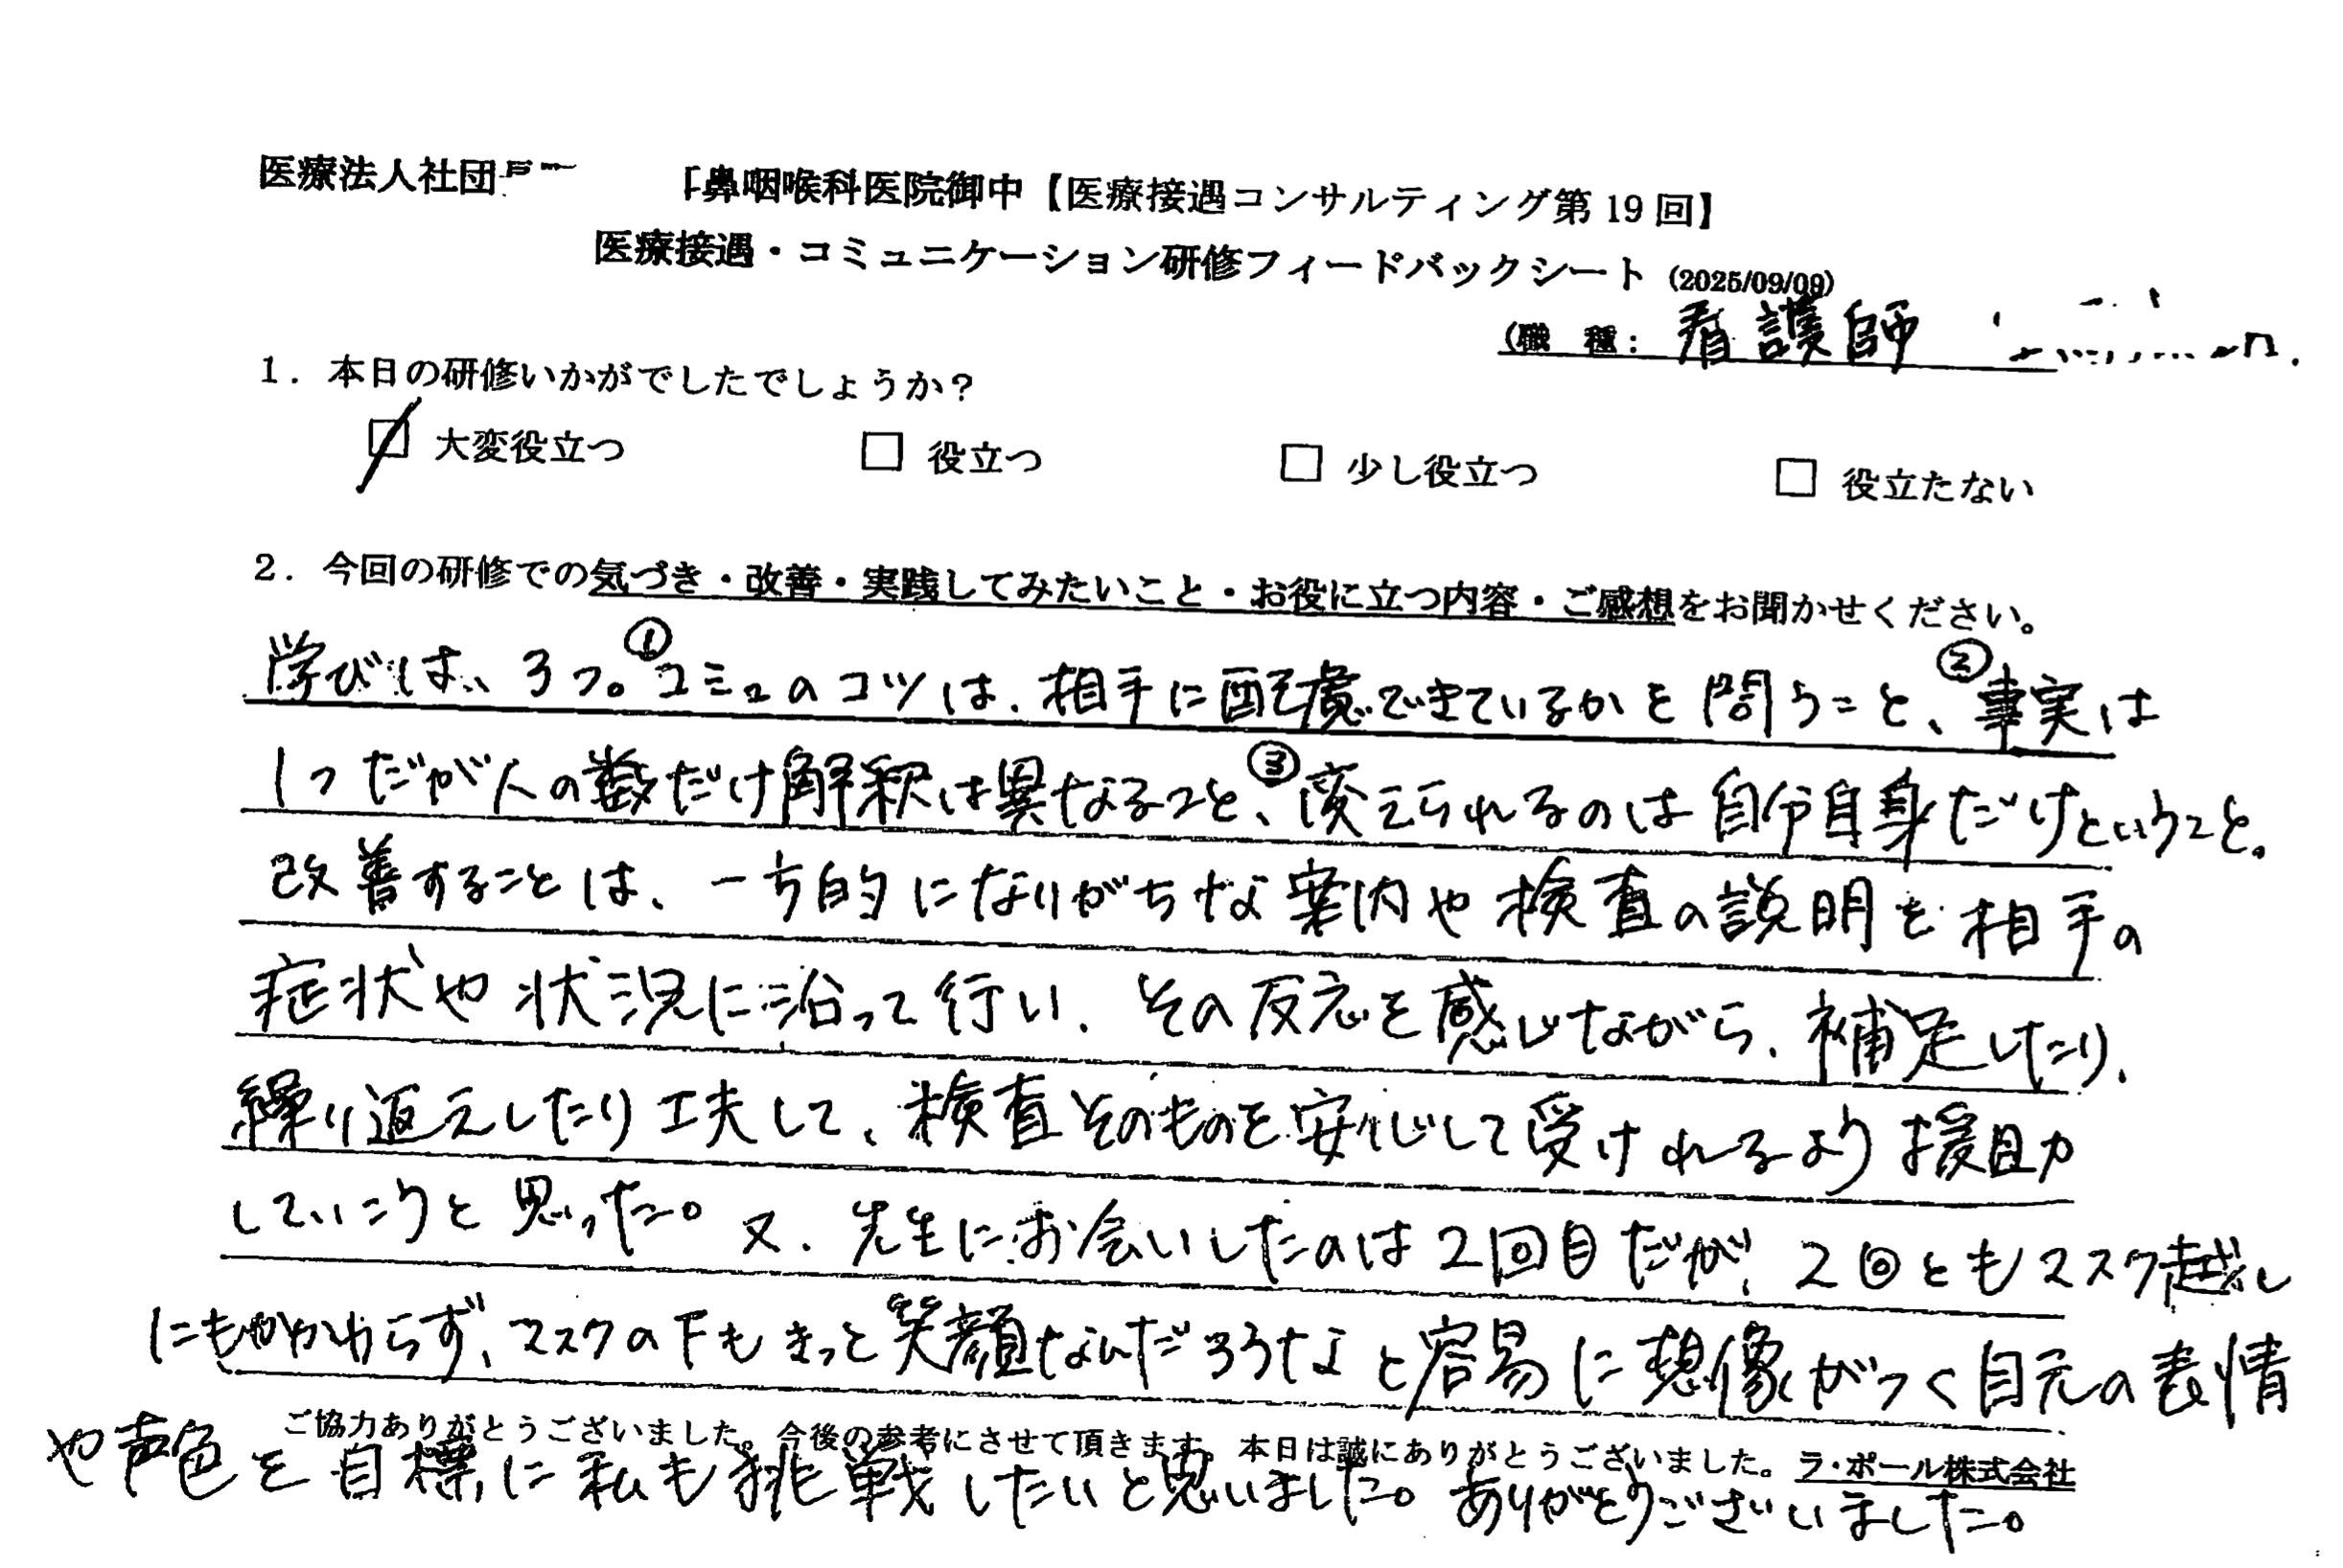 医療法人社団
鼻咽喉科医院御中【医療接遇コンサルティング第19回】
医療接遇・コミュニケーション研修フィードバックシート (2025/09/09)
(職 種: 看護師
1. 本日の研修いかがでしたでしょうか?
大変役立つ 役立つ 少し役立つ 役立たない
2. 今回の研修での気づき・改善・実践してみたいこと・お役に立つ内容・ご感想をお聞かせください。
学びは、3つ。①コミュのコツは、相手に配慮できているかを問うこと、②事実は
1つだが人の数だけ解釈は異なること、③変えられるのは自分自身だけということ。
改善することは、一方的になりがちな案内や検査の説明を相手の
症状や状況に沿って行い、その反応を感じながら、補足したり、
繰り返えしたり工夫して、検査そのものを安心して受けれるよう援助
していこうと思った。又、先生にお会いしたのは2回目だが、2回ともマスク越し
にもかかわらず、マスクの下もきっと笑顔なんだろうなと容易に想像がつく目元の表情
や声色を目標に私も挑戦したいと思いました。ありがとうございました。
ご協力ありがとうございました。今後の参考にさせて頂きます。本日は誠にありがとうございました。ラ・ポール株式会社